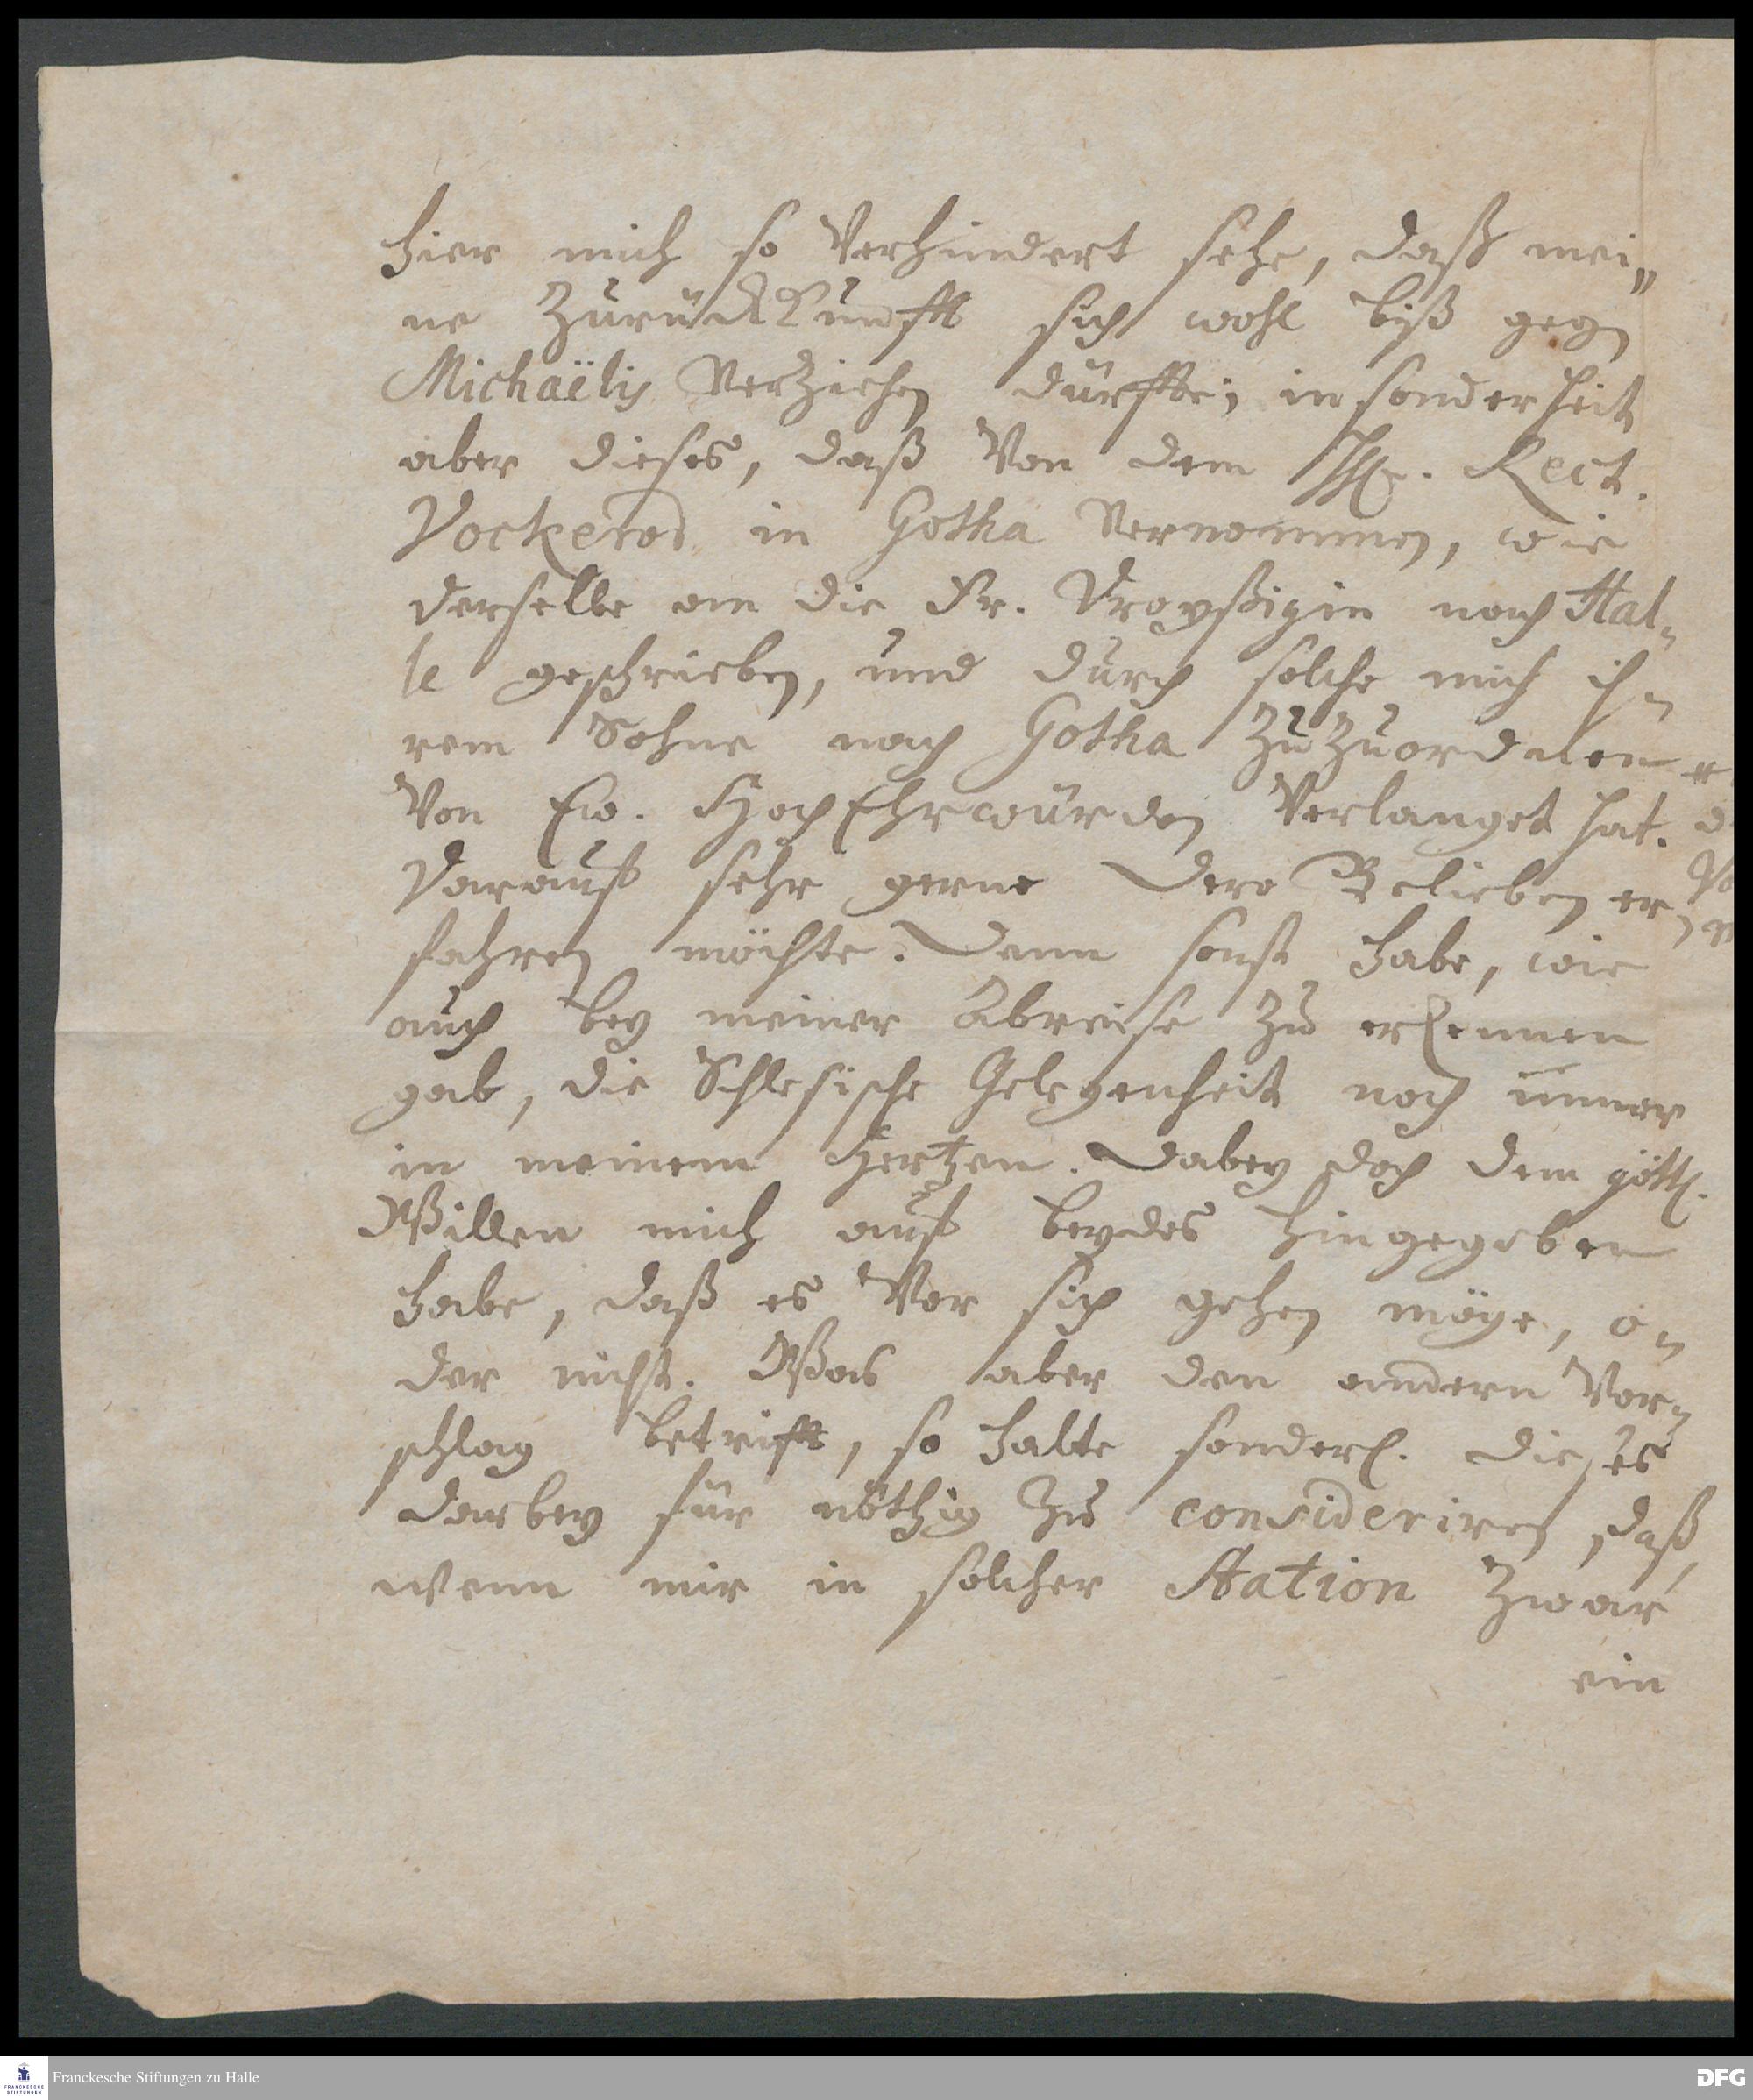 hier mich so verhindert sehe, daß mei„
ne Zurückkunfft sich wohl biß gegen
Michaëlis verziehen dürffte; in sonderheit
aber dieses, daß von dem H. Rect.
Vockerod in Gotha vernommen, wie
derselbe an die Fr. nach Hal„
le geschrieben, und durch solche mich ih„
rem Sohne nach Gotha zuzuordnen
von Ew. HochEhrwürden verlanget hat.
Darauf sehr gerne Dero Belieben er„
fahren möchte. Denn sonst habe, wie
auch bey meiner Abreise zu erkennen
gab, die Schlesische Gelegenheit noch immer
in meinem Hertzen. Dabey doch dem göttl.
Willen mich auf beydes hingegeben
habe, daß es vor sich gehen möge, o„
der nicht. Was aber den andern Vor„
schlag betrifft, so halte sonderl. dieses
darbey für nöthig zu consideriren, daß,
wenn mir in solcher Station zwar
ein
Franckesche Stiftungen zu Halle
DFG